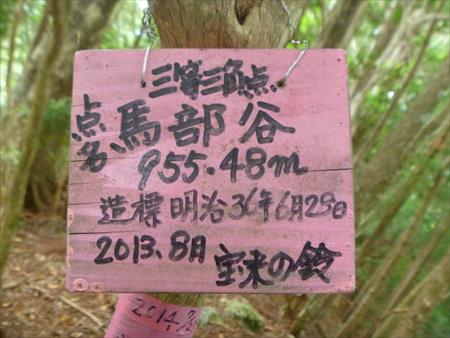 三等三角点
点名 馬部谷
955.48m
造標 明治36年6月29日
2013.8月 宝来の鈴
2014